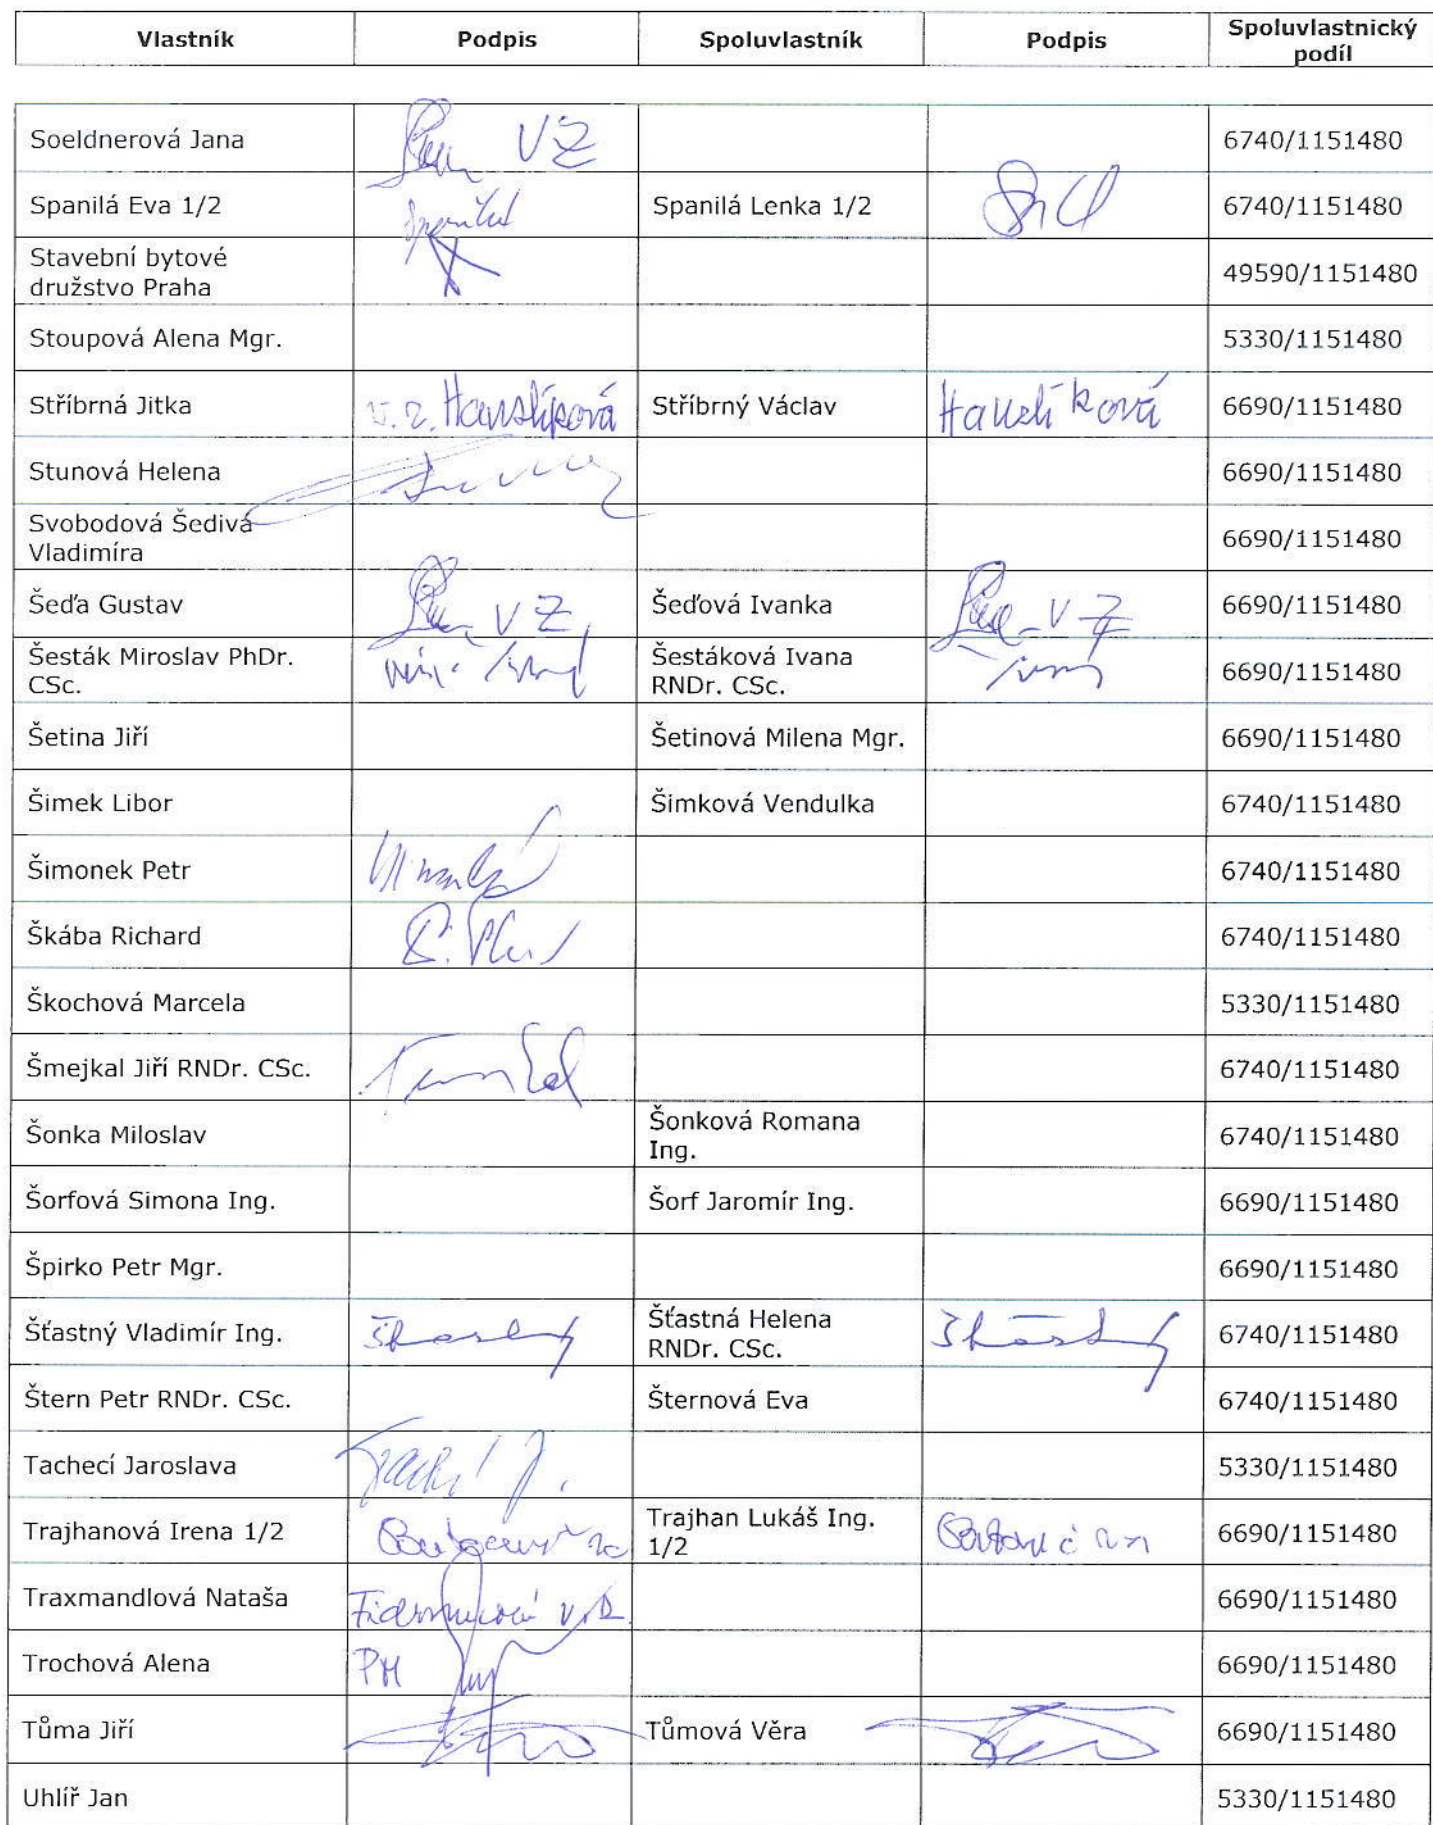 Vlastník Podpis Spoluvlastník Podpis Spoluvlastnický
podíl
Soeldnerová Jana VZ 6740/1151480
Spanilá Eva 1/2 Spanilá Lenka 1/2 6740/1151480
Stavební bytové
družstvo Praha 49590/1151480
Stoupová Alena Mgr. 5330/1151480
Stříbrná Jitka v.z. Hanslíková Stříbrný Václav Hanslíková 6690/1151480
Stunová Helena 6690/1151480
Svobodová Šedivá
Vladimíra 6690/1151480
Šeďa Gustav VZ Šeďová Ivanka VZ 6690/1151480
Šesták Miroslav PhDr.
CSc. Šestáková Ivana
RNDr. CSc. 6690/1151480
Šetina Jiří Šetinová Milena Mgr. 6690/1151480
Šimek Libor Šimková Vendulka 6740/1151480
Šimonek Petr 6740/1151480
Škába Richard 6740/1151480
Škochová Marcela 5330/1151480
Šmejkal Jiří RNDr. CSc. 6740/1151480
Šonka Miloslav Šonková Romana
Ing. 6740/1151480
Šorfová Simona Ing. Šorf Jaromír Ing. 6690/1151480
Špirko Petr Mgr. 6690/1151480
Šťastný Vladimír Ing. Šťastná Helena
RNDr. CSc. 6740/1151480
Štern Petr RNDr. CSc. Šternová Eva 6740/1151480
Tachecí Jaroslava 5330/1151480
Trajhanová Irena 1/2 Trajhan Lukáš Ing.
1/2 6690/1151480
Traxmandlová Nataša 6690/1151480
Trochová Alena PM 6690/1151480
Tůma Jiří Tůmová Věra 6690/1151480
Uhlíř Jan 5330/1151480